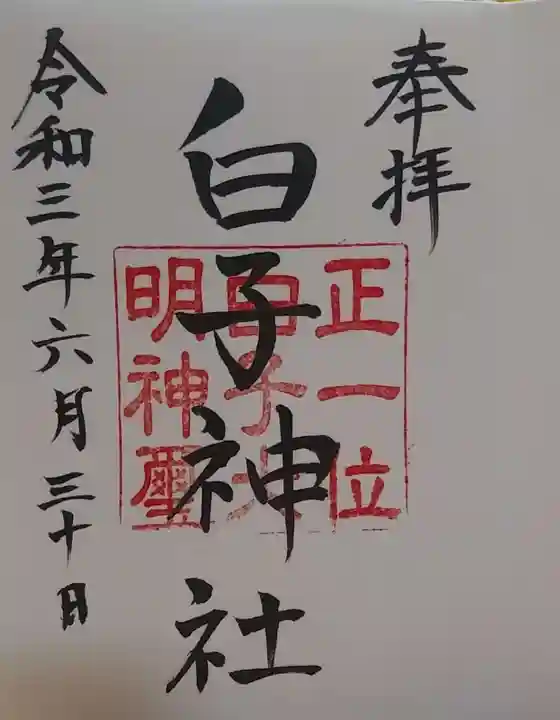 奉拝
白子神社
令和三年六月三十日
正一位
白子大
明神璽